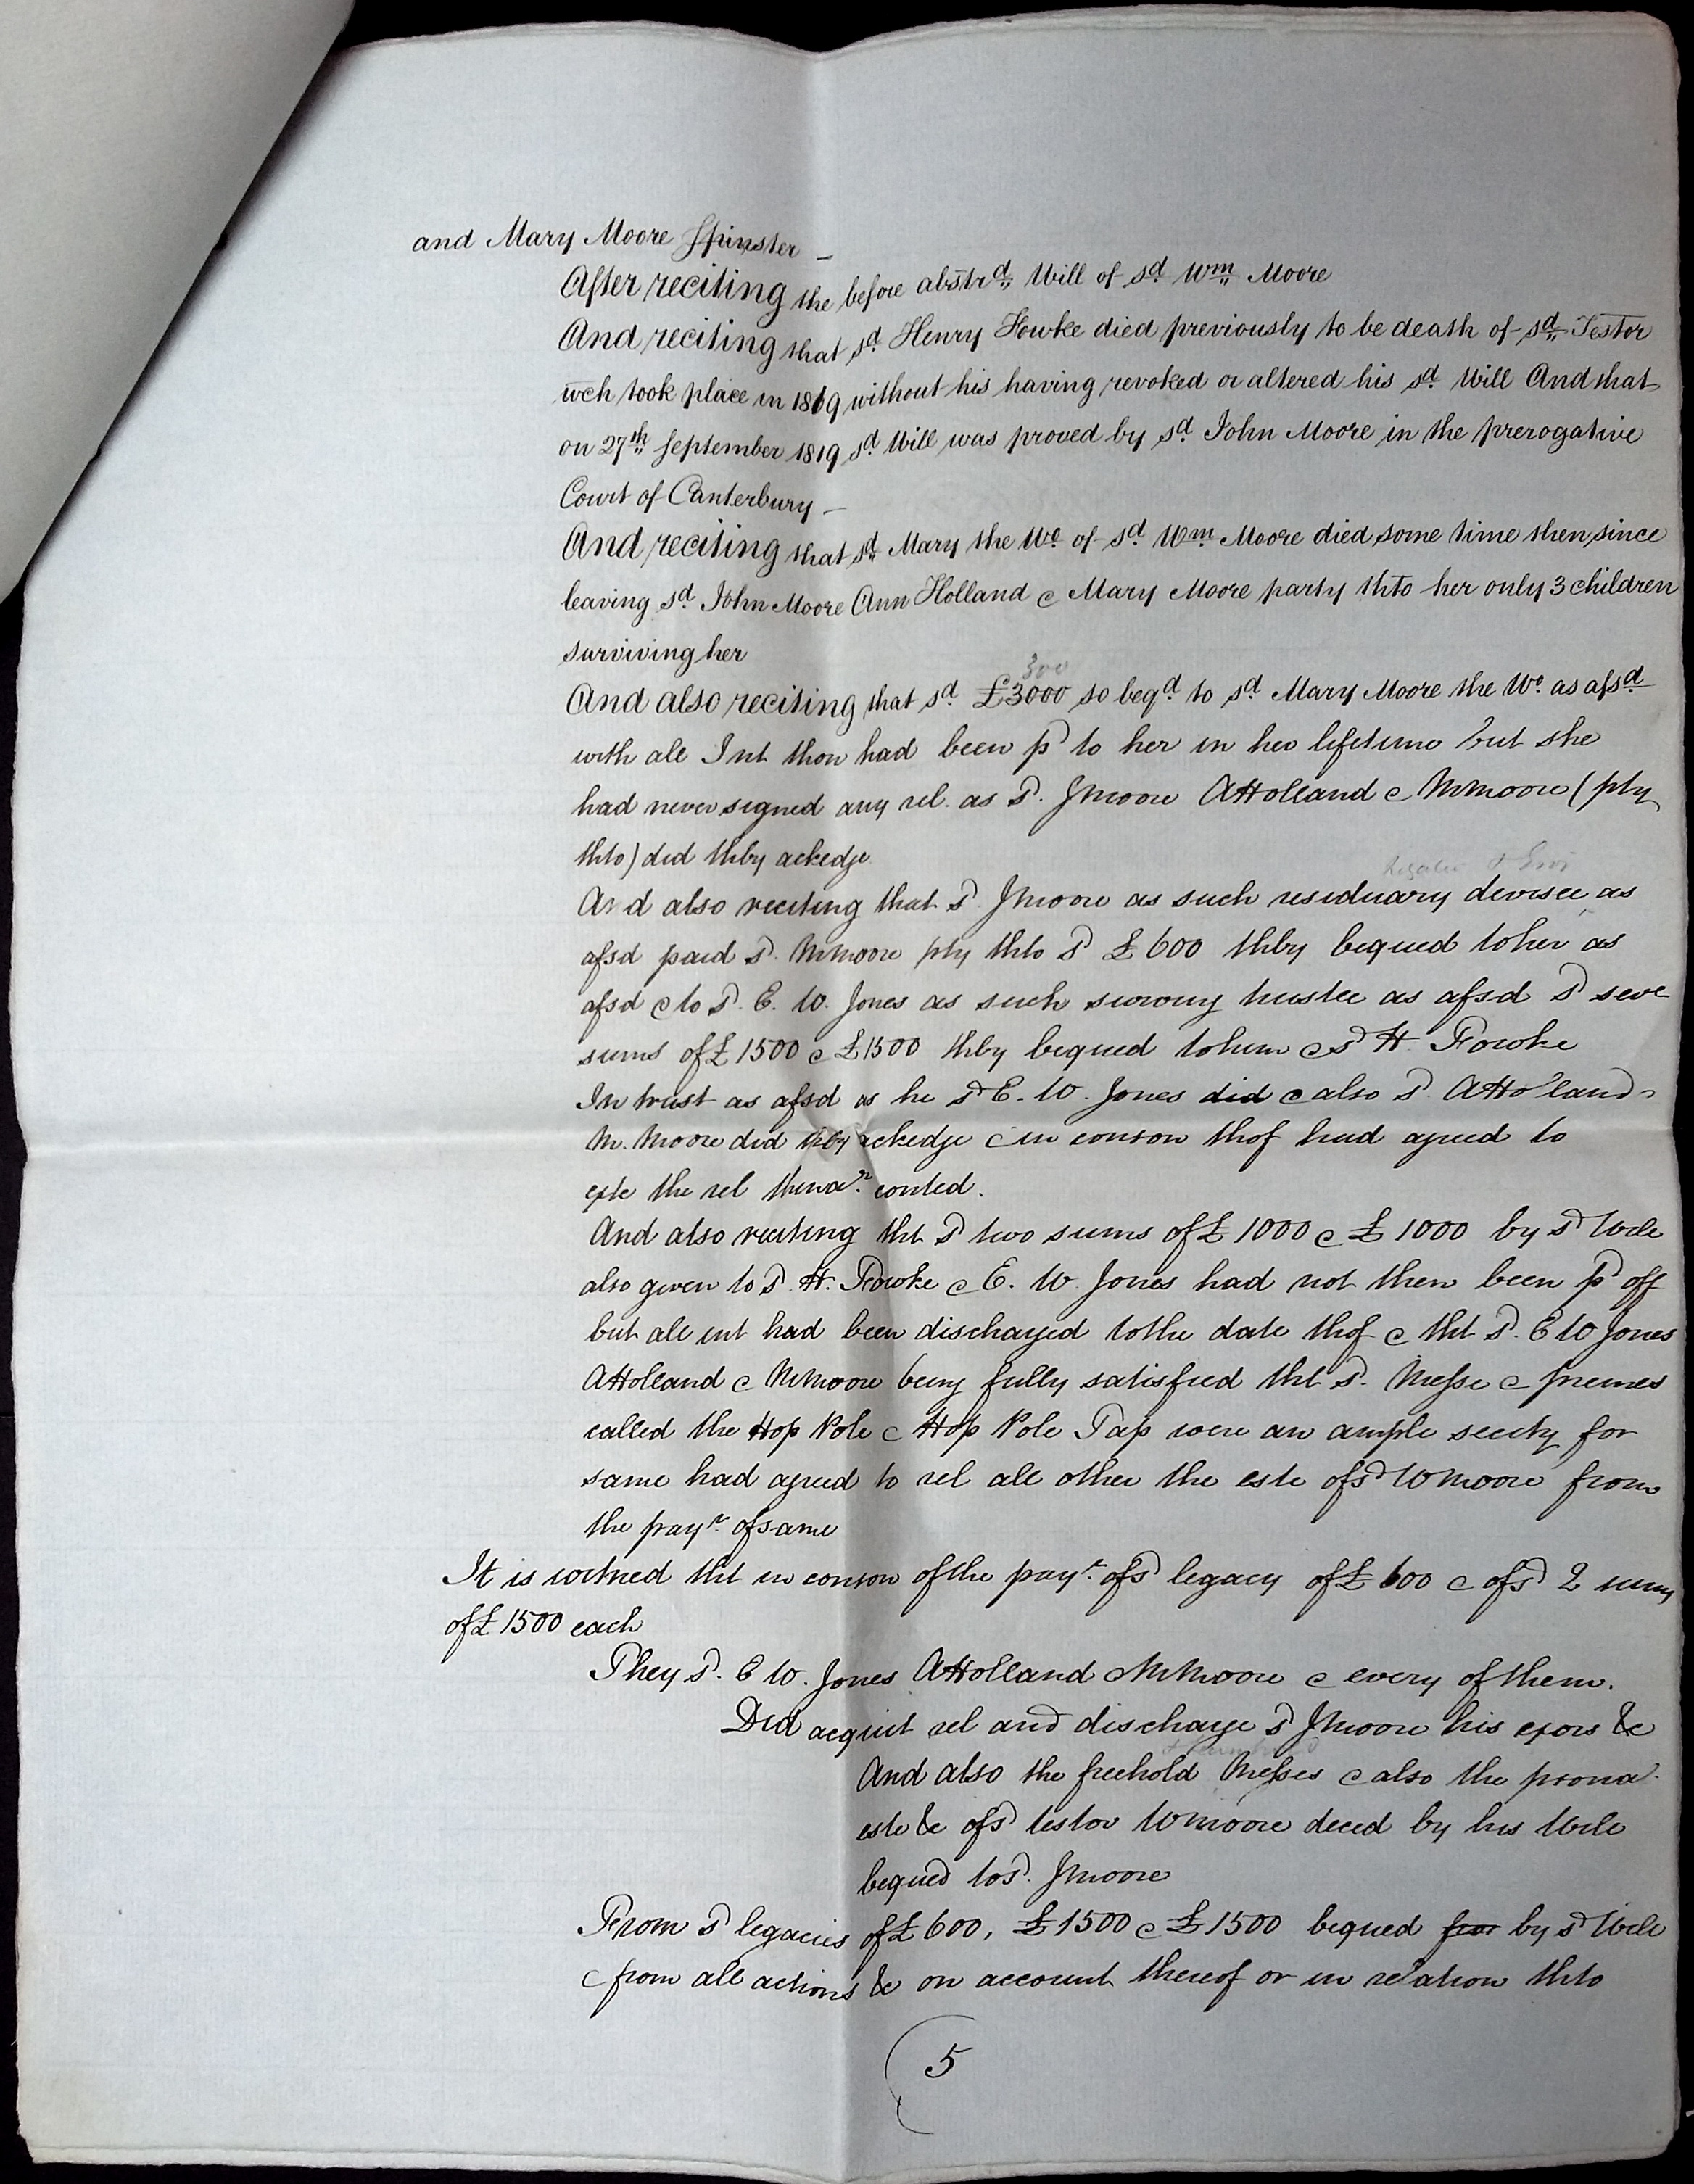 and Mary Moore Spinster –
After reciting the before abstrd. Will of sd. Wm. Moore
And reciting that sd. Henry Fowke died previously to be death of sd. Testor
wch took place in 1819 without his having revoked or altered his sd. Will And that
on 27th September 1819 sd. Will was proved by sd. John Moore in the prerogative
Court of Canterbury –
And reciting that sd. Mary the We. of sd. Wm. Moore died some time then since
leaving sd. John Moore Ann Holland & Mary Moore party thto her only 3 children
surviving her
300
And also reciting that sd. £3000 so beqd. to sd. Mary Moore the We. as afsd.
with all Int thon had been pd to her in her lifetime but she
had never signed any rel. as sd. JMoore AHolland & MMoore (pty
thto) did thby ackedge
And also reciting that sd. JMoore as such residuary devisee as
afsd paid sd. MMoore pty thto sd £600 thby bequed to her as
afsd & to sd. E. W. Jones as such survivg trustee as afsd sd seve
sums of £1500 & £1500 thby bequed to him & sd H Fowke
In trust as afsd as he sd E. W. Jones did & also sd AHolland &
M. Moore did thby ackedge & in conson thof had agreed to
exte the rel therinar. conted.
And also reciting tht sd two sums of £1000 & £1000 by sd Will
also given to sd. H. Fowke & E. W. Jones had not then been pd off
but all int had been discharged to the date thof & tht sd. E W Jones
AHolland & MMoore being fully satisfied tht sd. Messe & premes
called the Hop Pole & Hop Pole Tap were an ample secity for
same had agreed to rel all other the este of sd WMoore from
the payt. of same
It is witned tht in conson of the payt. of sd legacy of £600 & of sd 2 sums
of £1500 each
They sd. E W. Jones AHolland & MMoore & every of them.
Did acquit rel and discharge sd JMoore his exors &c
And also the freehold Messes & also the prona.
este &c of sd testor WMoore deced by his Will
bequed to sd. JMoore
From sd legacies of £600, £1500 & £1500 bequed for by sd Will
& from all actions &c on account thereof or in relation thto
5